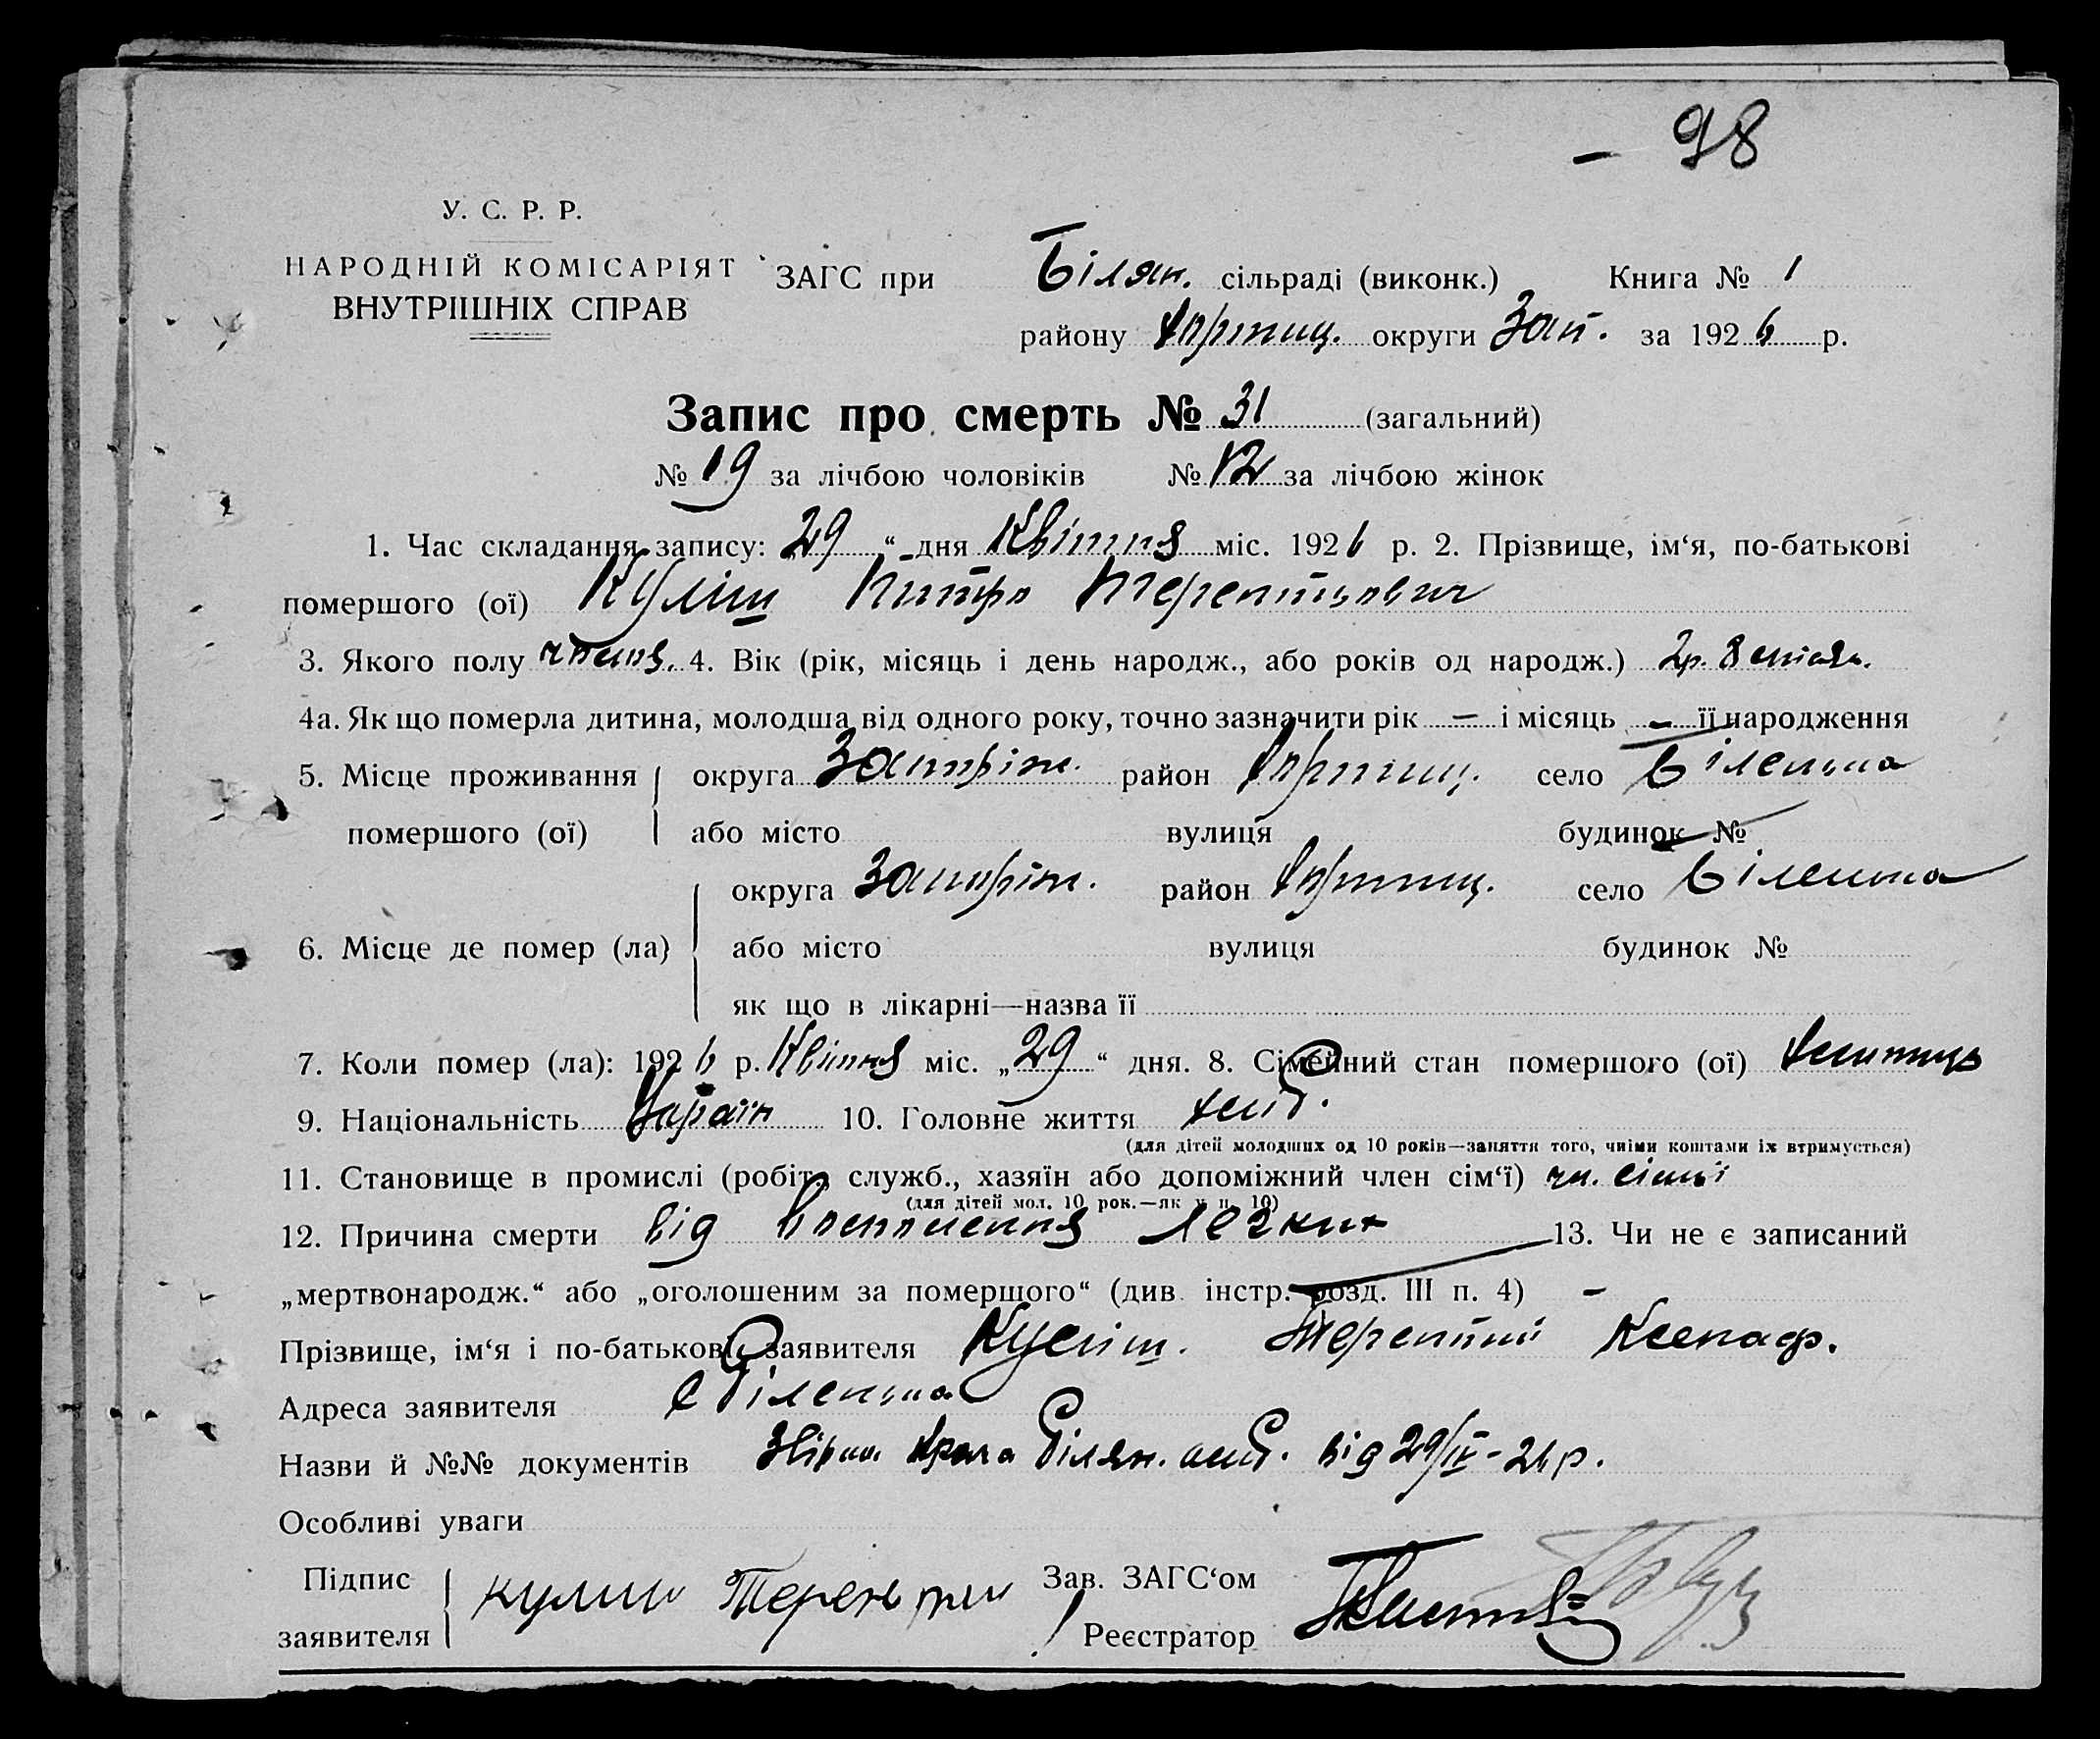 – 98
У. С. Р. Р.
НАРОДНІЙ КОМІСАРІЯТ
ВНУТРІШНІХ СПРАВ
ЗАГС при Білян. сільраді (виконк.) Книга № 1
району Хортиц. округи Зап. за 1926 р.
Запис про смерть № 31 (загальний)
№ 19 за лічбою чоловіків № 12 за лічбою жінок
1. Час складання запису: 29 “ дня Квітня міс. 1926 р. 2. Прізвище, ім‘я, по-батькові
помершого (ої) Куліш Питро Терентьович
3. Якого полу 4. Вік (рік, місяць і день народж., або років од народж.) 2р. 8
4а. Як що померла дитина, молодша від одного року, точно зазначити рік – і місяць – її народження
5. Місце проживання помершого (ої) округа Запоріж. район Хортиц. село Біленька
або місто вулиця будинок №
6. Місце де помер (ла) округа Запоріж. район Хортиц. село Біленька
або місто вулиця будинок №
як що в лікарні—назва її
7. Коли помер (ла): 1926 р. Квітня міс. „29“ дня. 8. Сімейний стан помершого (ої)
9. Національність Україн 10. Головне життя хліб.
(для дітей молодших од 10 років—заняття того, чиїми коштами їх втримується)
11. Становище в промислі (робіт., служб., хазяїн або допоміжний член сім‘ї) чл. сімьї
(для дітей мол. 10 рок.—як у п. 10)
12. Причина смерти від воспаления легких 13. Чи не є записаний
„мертвонародж.“ або „оголошеним за помершого“ (див. інстр. розд. III п. 4) –
Прізвище, ім‘я і по-батькові заявителя Куліш. Терентий Ксенаф.
Адреса заявителя с Біленька
Назви й №№ документів Білян. від 29/IV-26р.
Особливі уваги
Підпис заявителя Кулиш Терентий
Зав. ЗАГС‘ом
Реєстратор